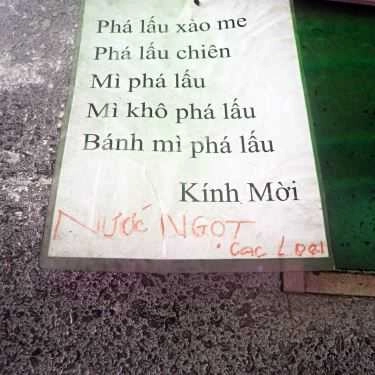 Phá lấu xào me
Phá lấu chiên
Mì phá lấu
Mì khô phá lấu
Bánh mì phá lấu
Kính Mời
NƯỚC NGỌT
các Loại